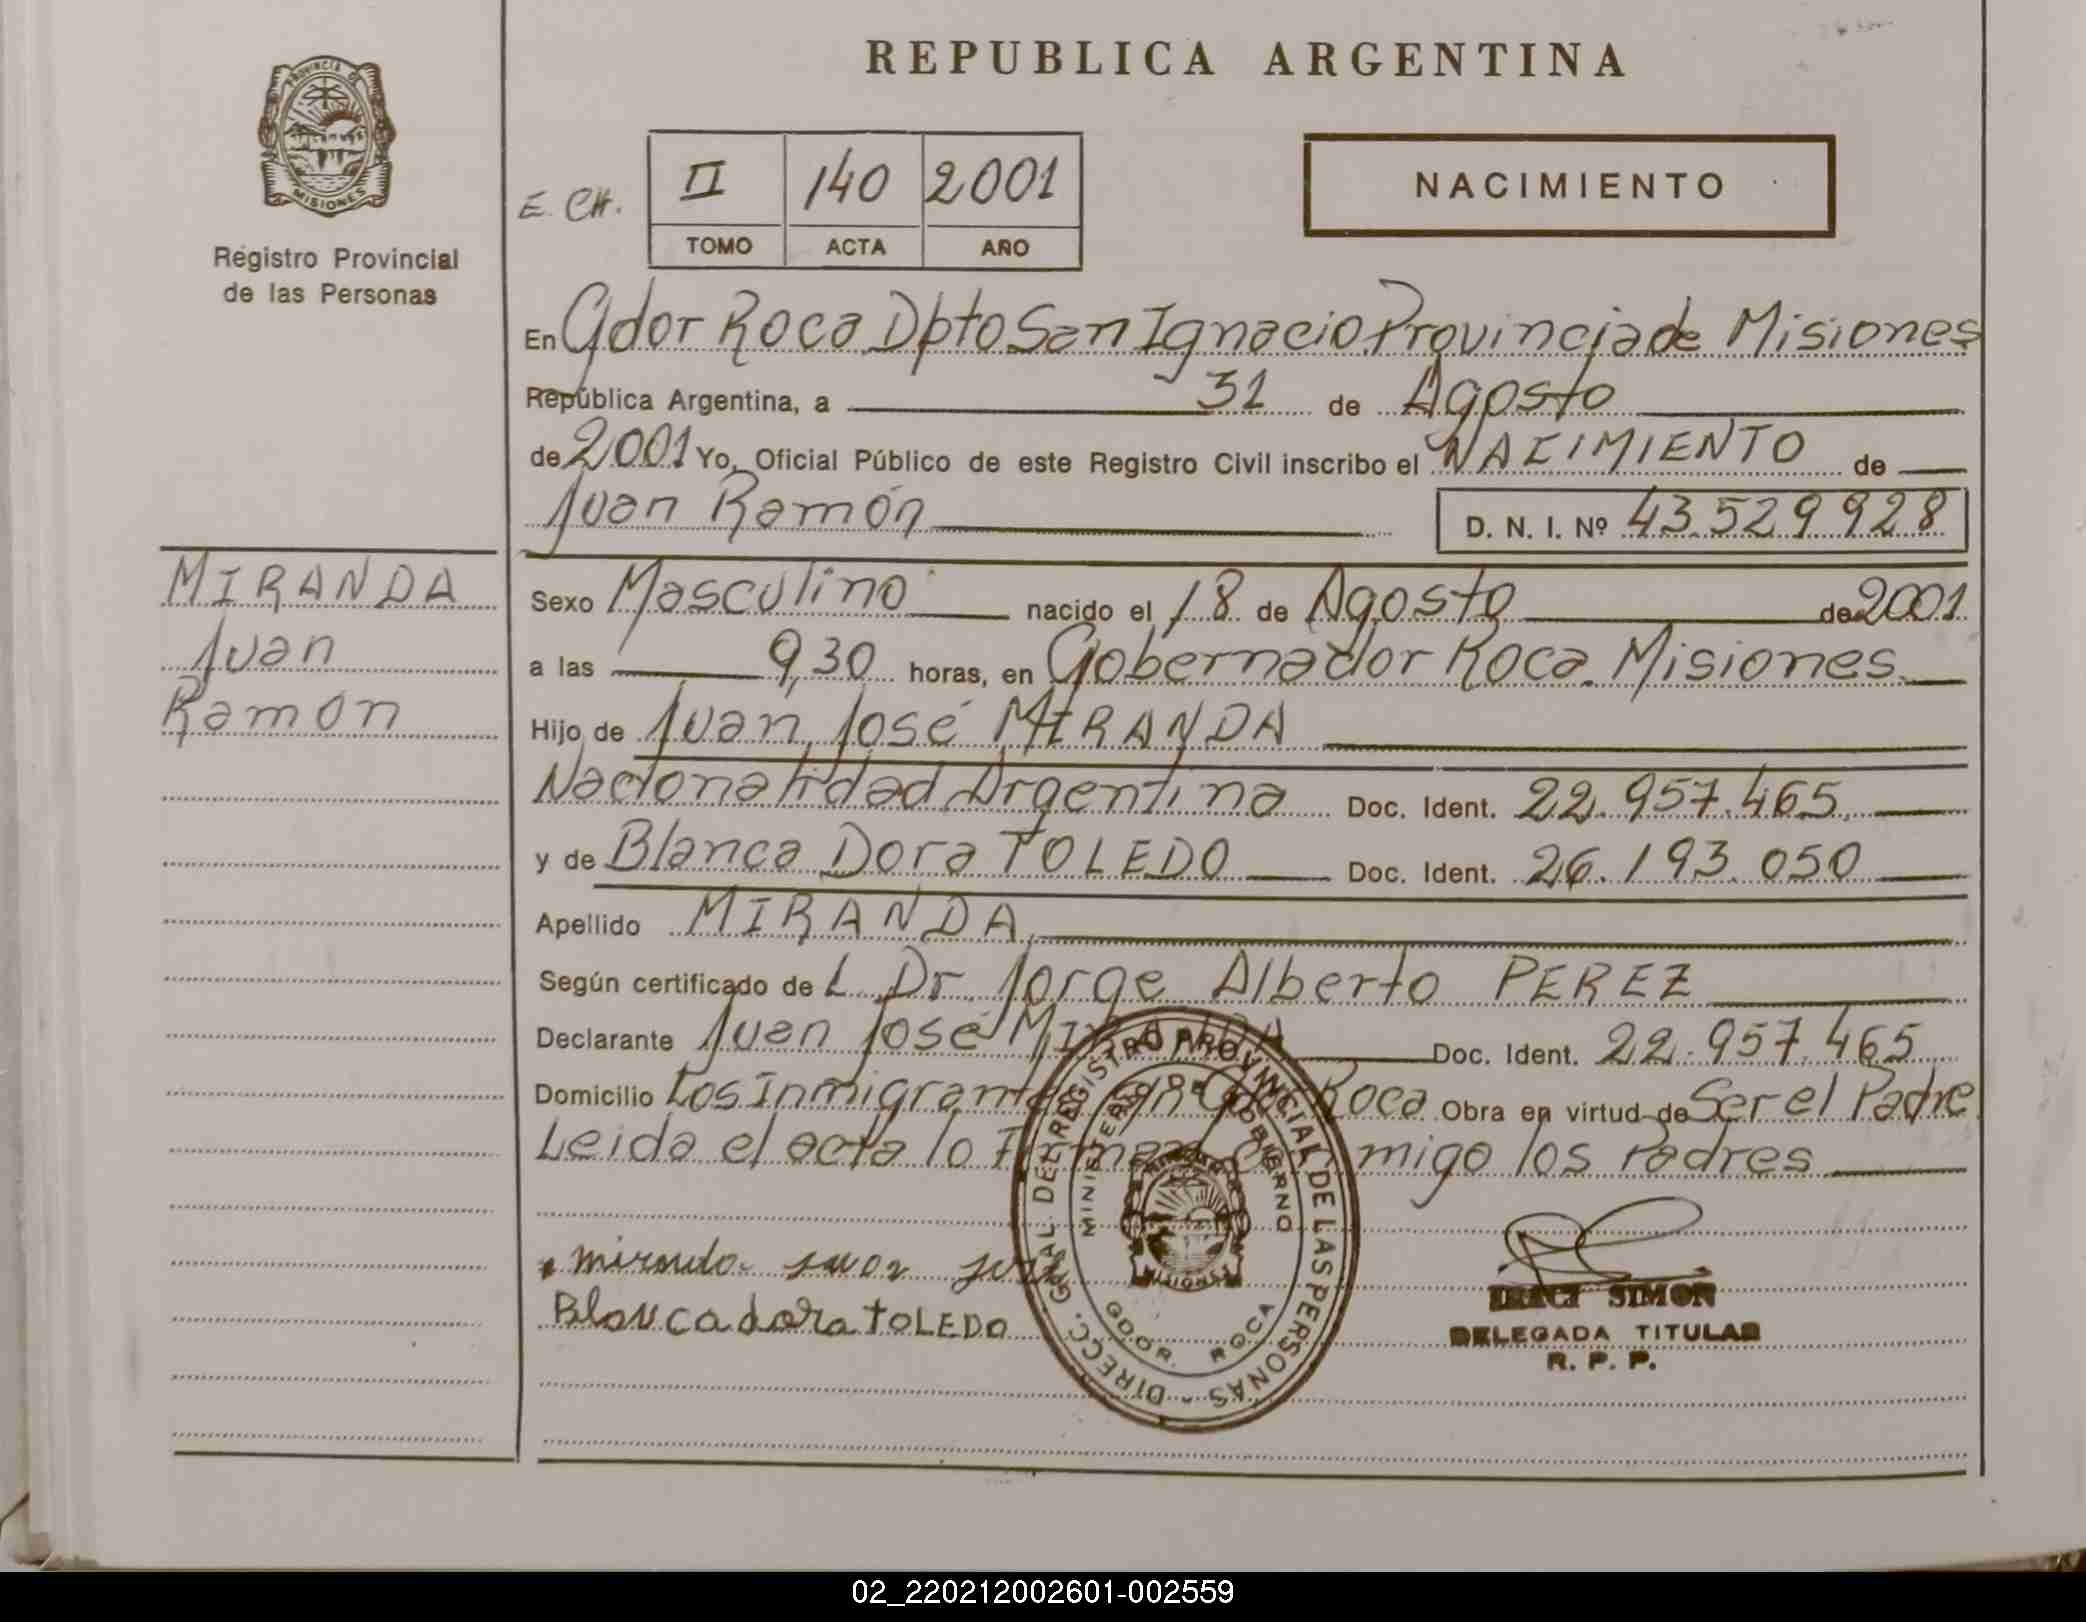 REPUBLICA ARGENTINA
PROVINCIA DE
MISIONES
Registro Provincial
de las Personas
E. CH.
II 140 2001
TOMO ACTA AÑO
NACIMIENTO
En Gdor Roca Dpto San Ignacio Provincia de Misiones
República Argentina, a 31 de Agosto
de 2001 Yo, Oficial Público de este Registro Civil inscribo el NACIMIENTO de
Juan Ramón D. N. I. Nº 43.529 928
MIRANDA
Juan
Ramón
Sexo Masculino nacido el 18 de Agosto de 2001
a las 9,30 horas, en Gobernador Roca. Misiones
Hijo de Juan José MIRANDA
Nacionalidad Argentina Doc. Ident. 22.957.465
y de Blanca Dora TOLEDO Doc. Ident. 26.193.050
Apellido MIRANDA
Según certificado de L Dr. Jorge Alberto PEREZ
Declarante Juan José MIRANDA Doc. Ident. 22.957.465
Domicilio Los Inmigrantes Roca Obra en virtud de Ser el Padre
Leida el acta lo Firman Conmigo los Padres
miranda juan
Blancadora TOLEDO
DIRECC. GRAL. DEL REGISTRO PROVINCIAL DE LAS PERSONAS -
MINISTERIO DE GOBIERNO
MISIONES
GDOR. ROCA
IRACI SIMON
DELEGADA TITULAR
R. P. P.
02_220212002601-002559